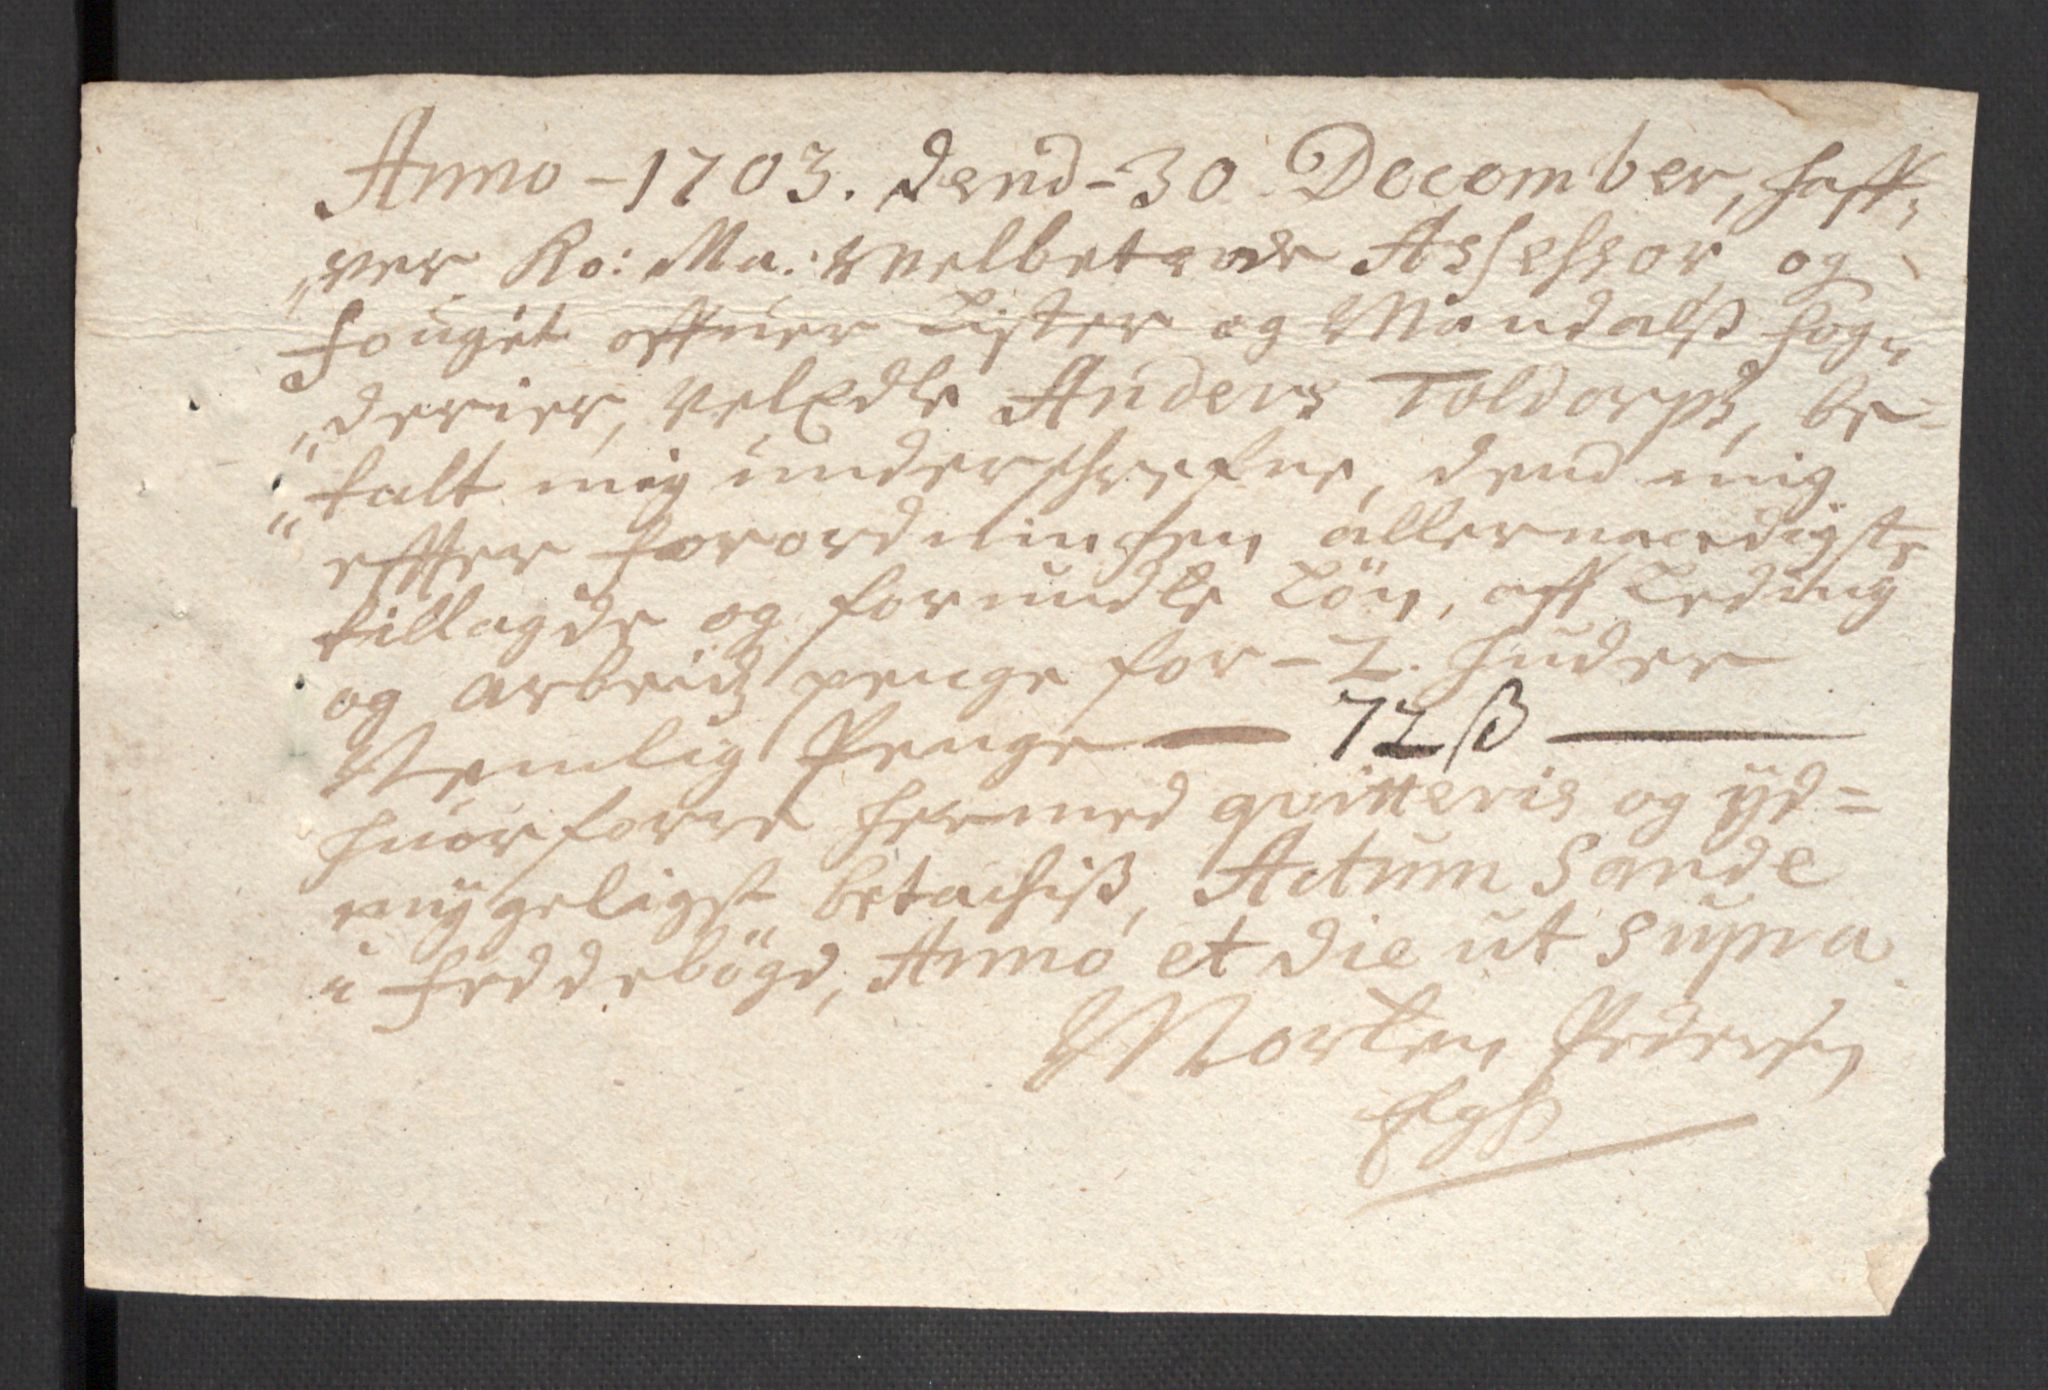 Anno – 1703. dend – 30 December, haff„
„ver Ko: Ma: Welbetrode Assessor og
fouget offuer Lister og Mandalß fog„
„derier, VelEdle Anders Toldorph, be=
„talt mig underschrefne, dend mig
effter forordningen allernaadigste
tillagde og forundte Lön, aff Leding
og arbeidz penge for – 2. huder
Nemlig Penge — 72 ß —
huorforre hermed qvitteris og yd=
mygeligst betachiß, Actum Sande
i Feddebögd, Anno et die ut supra
Morten Pedersen